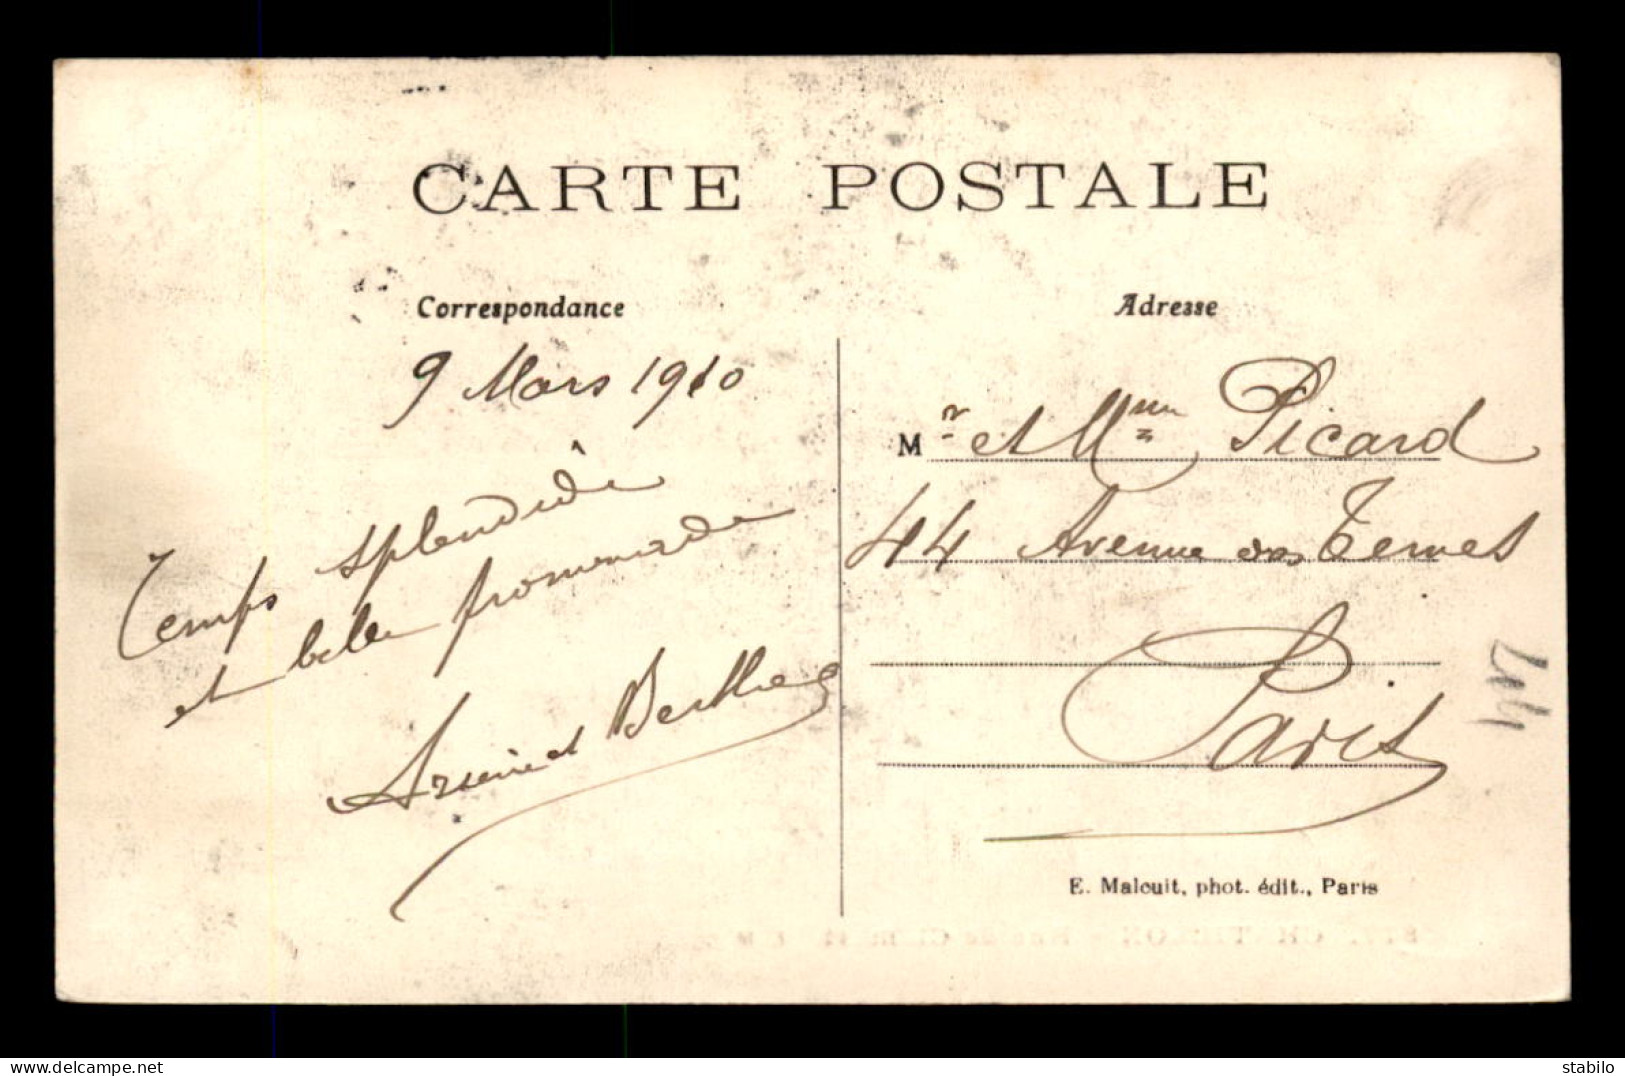 CARTE POSTALE
Correspondance
9 Mars 1910
Temps splendide
et belle promenade
Arsène et Berthe
Adresse
Mr et Mme Picard
44 Avenue des Ternes
Paris
E. Malcuit, phot. édit., Paris
www.delcampe.net
stabilo